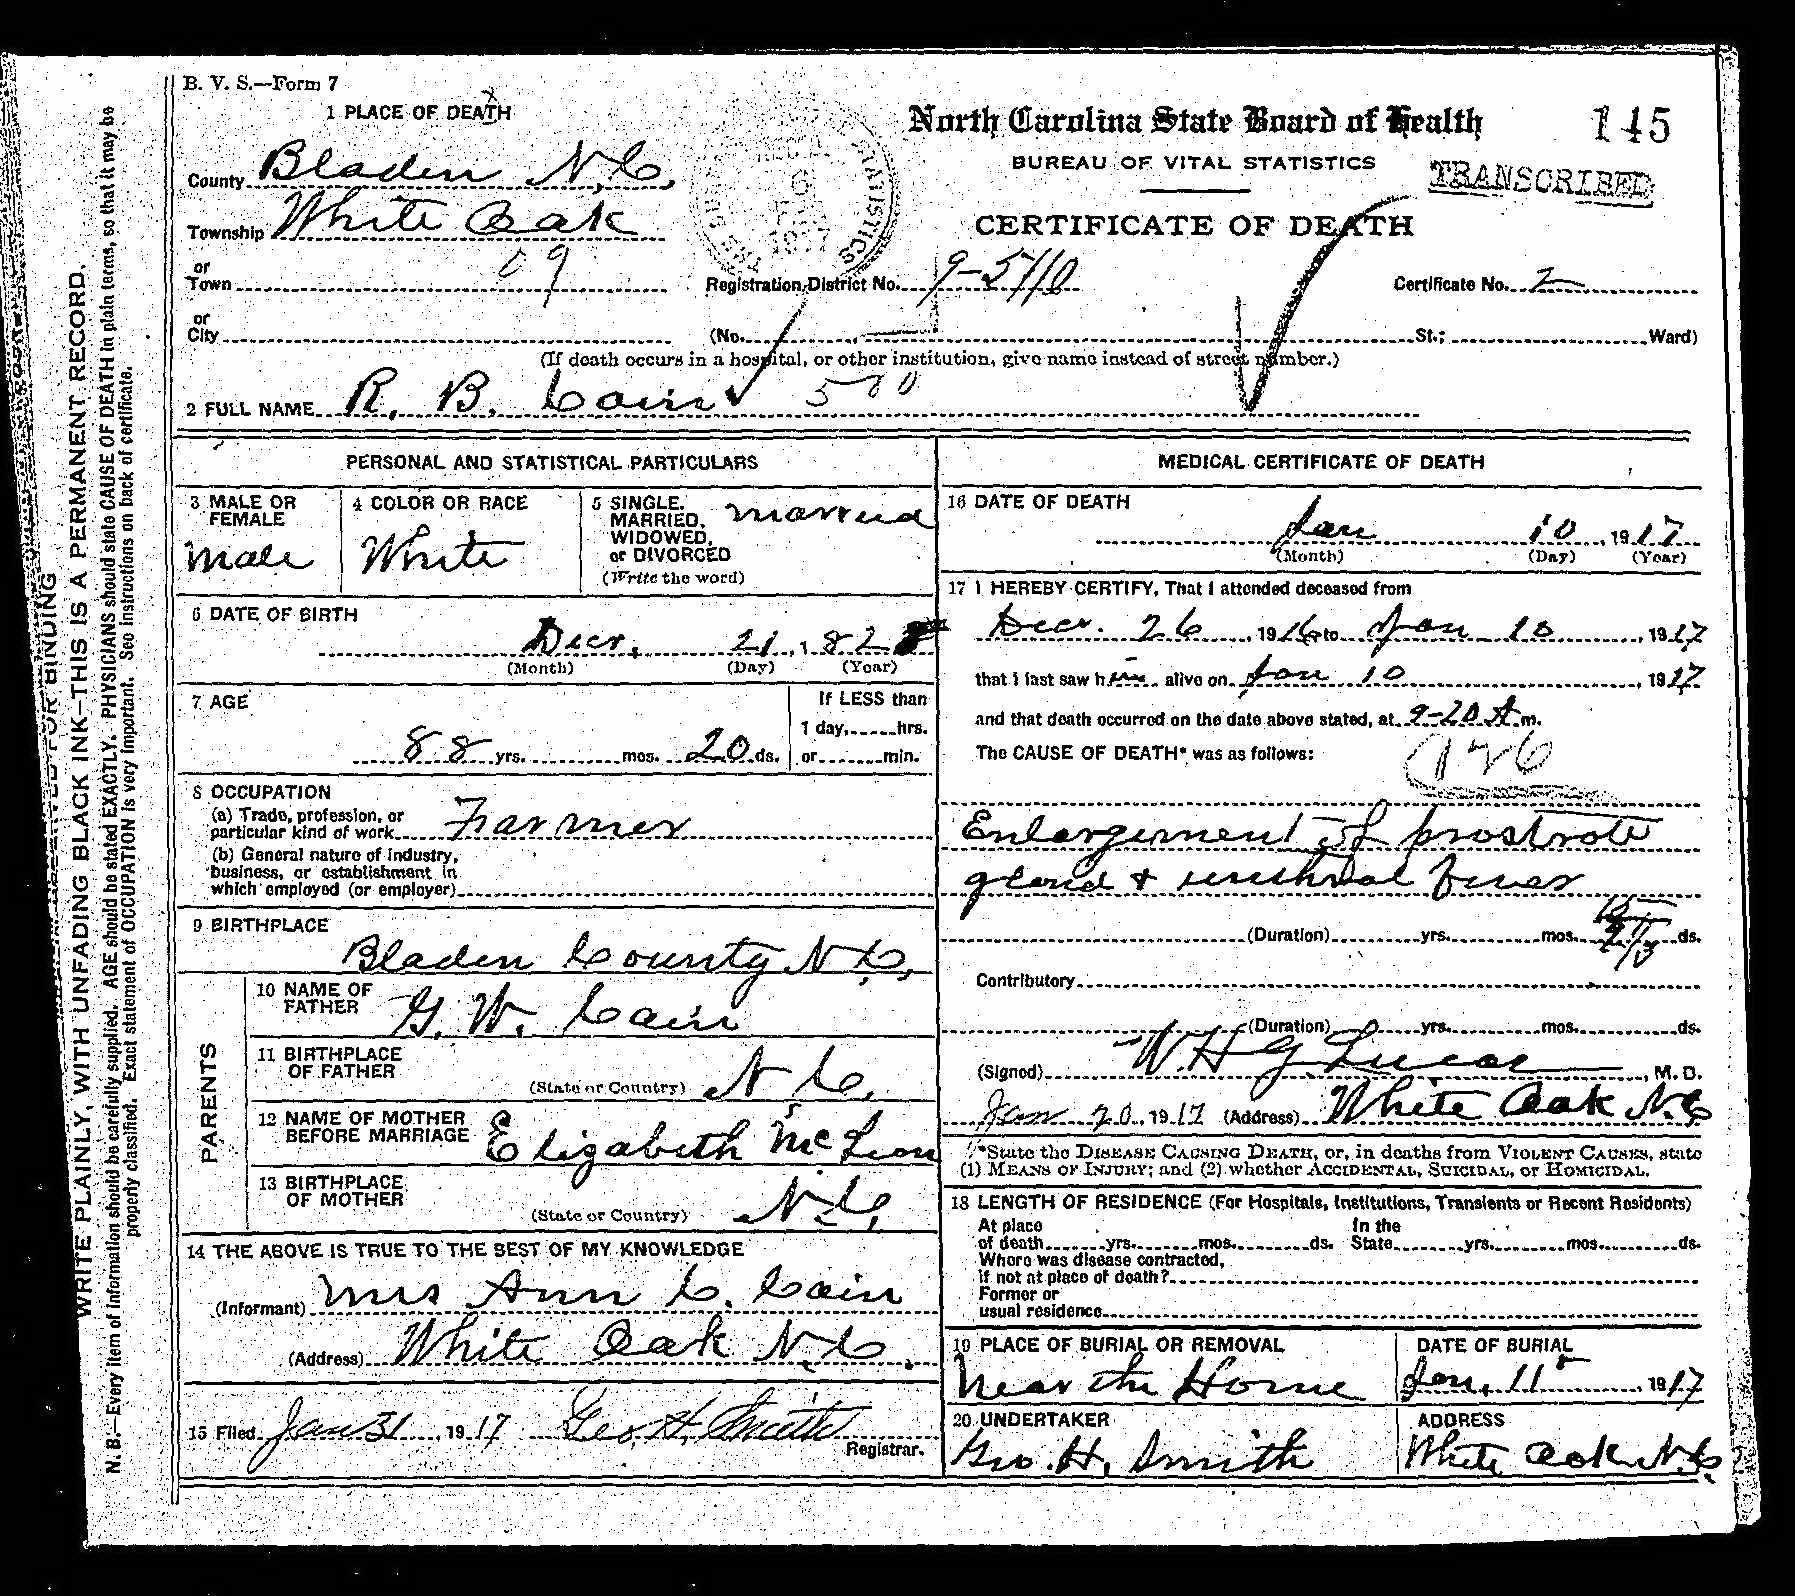 B. V. S.—Form 7
1 PLACE OF DEATH
North Carolina State Board of Health
145
BUREAU OF VITAL STATISTICS
TRANSCRIBED
County Bladen N.C.
Township White Oak
CERTIFICATE OF DEATH
or
Town 09
Registration District No. 9-5110
Certificate No. 2
or
City (No. St.; Ward)
(If death occurs in a hospital, or other institution, give name instead of street number.)
2 FULL NAME R. B. Cain 500
PERSONAL AND STATISTICAL PARTICULARS
3 MALE OR FEMALE
Male
4 COLOR OR RACE
White
5 SINGLE, MARRIED, WIDOWED, or DIVORCED
(Write the word)
married
6 DATE OF BIRTH
Decr. 21, 182
(Month) (Day) (Year)
7 AGE
88 yrs. mos. 20 ds.
If LESS than
1 day, hrs.
or min.
8 OCCUPATION
(a) Trade, profession, or
particular kind of work Farmer
(b) General nature of industry,
business, or establishment in
which employed (or employer)
9 BIRTHPLACE
Bladen County N.C.
PARENTS
10 NAME OF FATHER
G. W. Cain
11 BIRTHPLACE OF FATHER
(State or Country) N C.
12 NAME OF MOTHER BEFORE MARRIAGE
Elizabeth Mc
13 BIRTHPLACE OF MOTHER
(State or Country) N.C.
14 THE ABOVE IS TRUE TO THE BEST OF MY KNOWLEDGE
(Informant) Mrs Ann C. Cain
(Address) White Oak N.C.
15 Filed Jan 31, 1917 Geo. H. Smith
Registrar.
MEDICAL CERTIFICATE OF DEATH
16 DATE OF DEATH
Jan 10, 1917
(Month) (Day) (Year)
17 I HEREBY CERTIFY, That I attended deceased from
Decr. 26, 1916, to Jan 10, 1917
that I last saw him alive on Jan 10, 1917
and that death occurred on the date above stated, at 9-20 A m.
The CAUSE OF DEATH* was as follows:
126
Enlargement of prostrate
gland & urethral fever
(Duration) yrs. mos. ds.
Contributory
(Duration) yrs. mos. ds.
(Signed) W. H G. Lucas, M. D.
Jan 20, 1917 (Address) White Oak N.C
*State the DISEASE CAUSING DEATH, or, in deaths from VIOLENT CAUSES, state
(1) MEANS OF INJURY; and (2) whether ACCIDENTAL, SUICIDAL, or HOMICIDAL.
18 LENGTH OF RESIDENCE (For Hospitals, Institutions, Transients or Recent Residents)
At place
of death yrs. mos. ds.
In the
State yrs. mos. ds.
Where was disease contracted,
if not at place of death?
Former or
usual residence
19 PLACE OF BURIAL OR REMOVAL
Near the Home
DATE OF BURIAL
Jan, 11, 1917
20 UNDERTAKER
Geo. H. Smith
ADDRESS
White Oak N.C.
WRITE PLAINLY, WITH UNFADING BLACK INK—THIS IS A PERMANENT RECORD.
N. B.—Every item of information should be carefully supplied. AGE should be stated EXACTLY. PHYSICIANS should state CAUSE OF DEATH in plain terms, so that it may be
properly classified. Exact statement of OCCUPATION is very important. See instructions on back of certificate.
FOR BINDING
STATISTICS